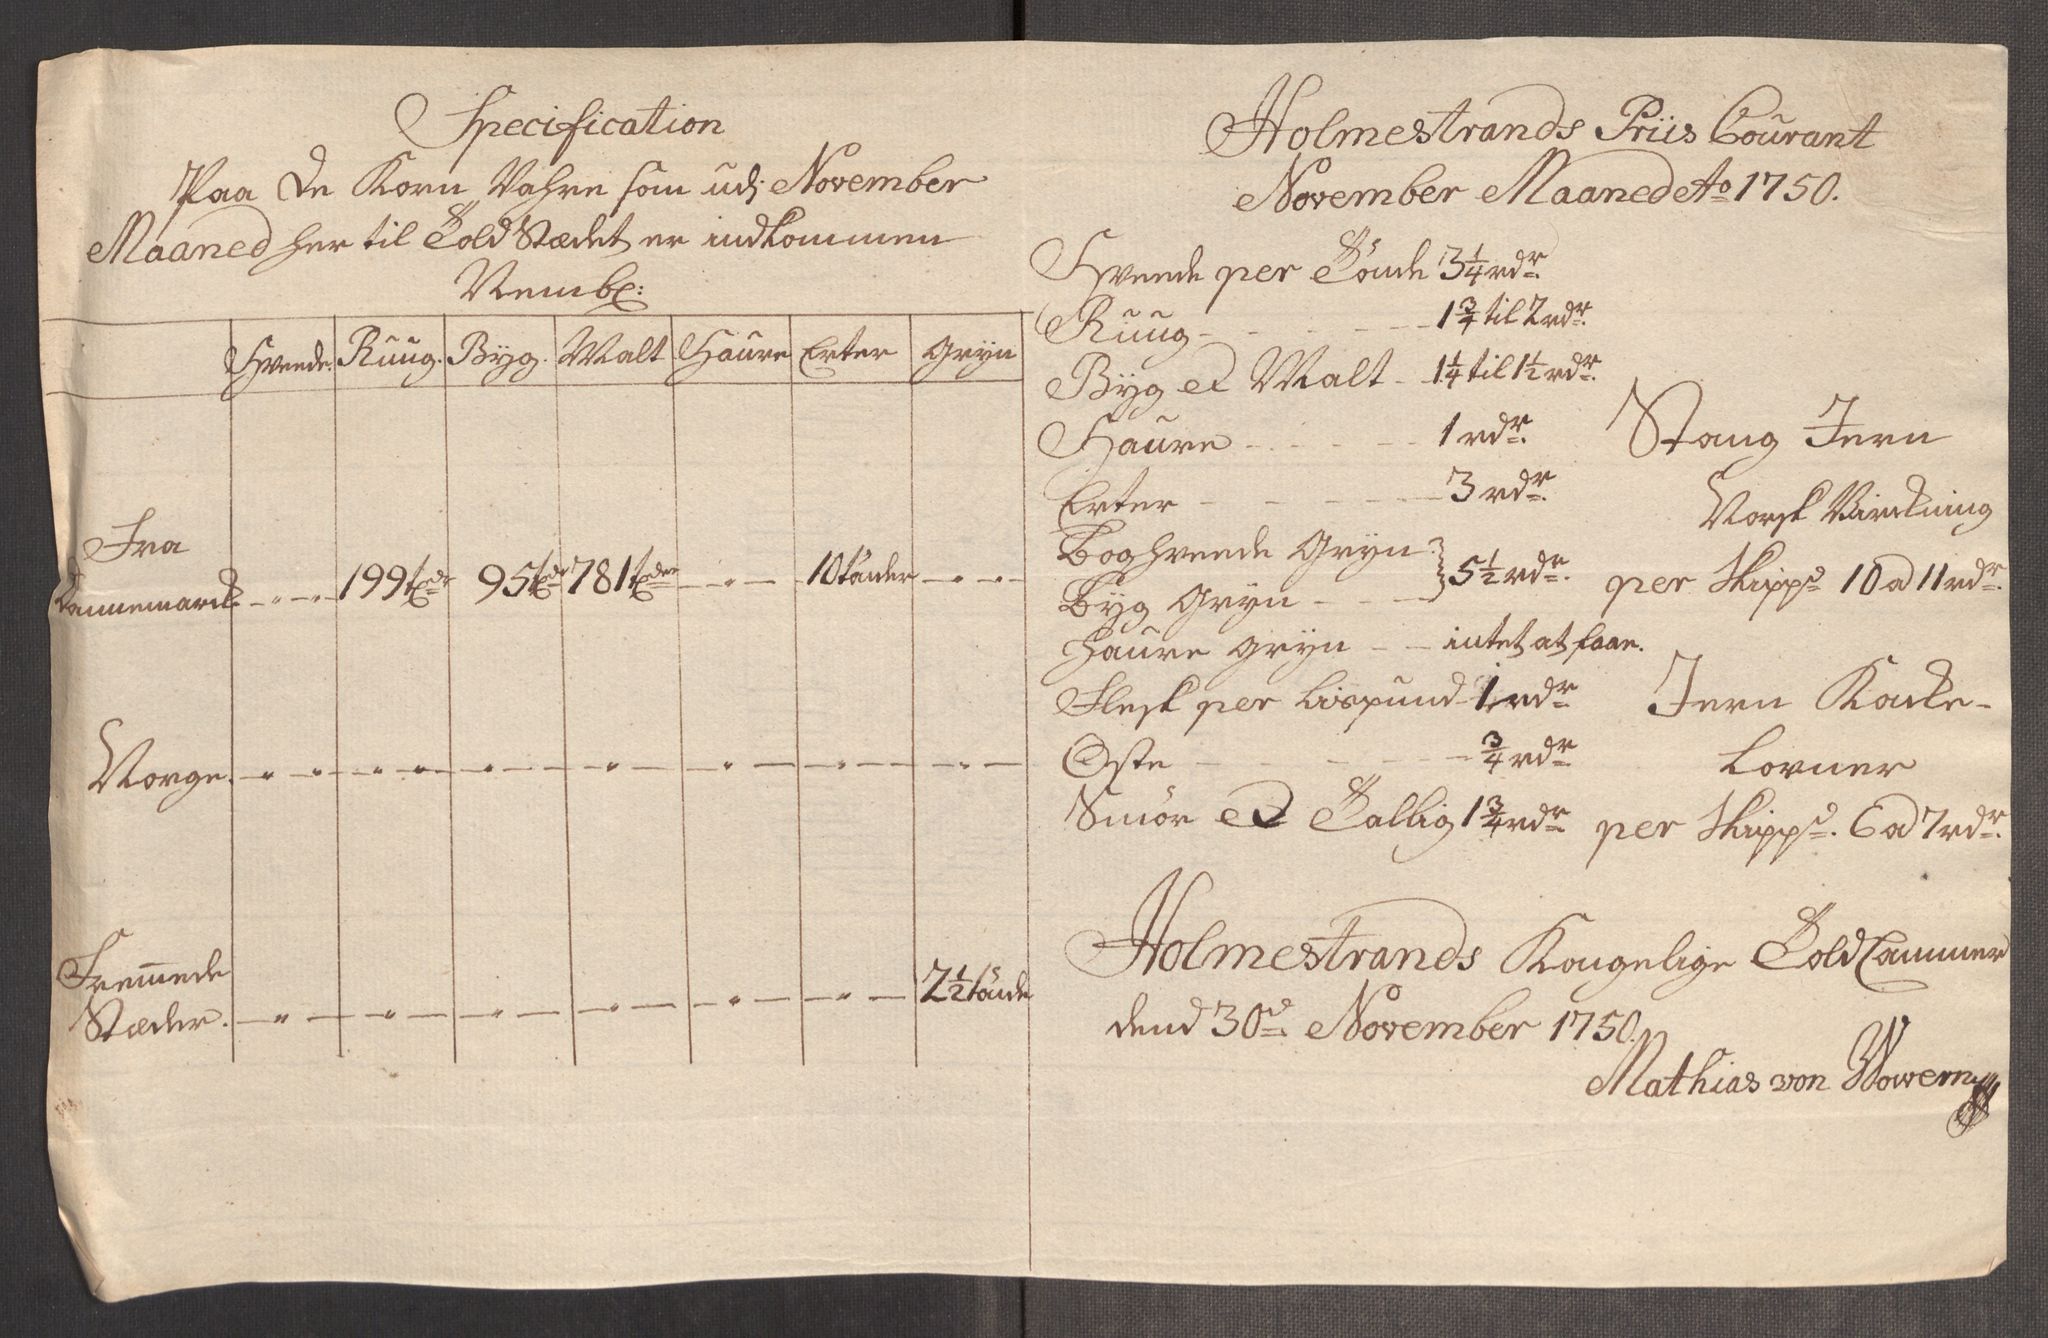 Specification
Paa de Korn Vahre som udj November
Maaned her til Told Stædet er indkommen
Nembl:
Hvede. Ruug. Byg. Malt Haure Erter Gryn
Fra
Dannemarck. 199 tr 95 tr 781 tr 10 tönder
Norge.
Fremmede
Stæder. 2 1/2 tönde
Holmestrands Priis Courant
November Maaned Ao 1750.
Hvede per Tönde 3 1/4 rdr.
Ruug 1 3/4 til 2 rdr.
Byg et Malt 1 1/4 til 1 1/2 rdr.
Haure 1 rdr.
Erter 3 rdr.
Boghvede Gryn
Byg Gryn 5 1/2 rdr.
Haure Gryn intet at faae.
Flesk per Lispund 1 rdr
Oste 3/4 rdr
Smör et Tallig 1 3/4 rdr
Stang Jern
Norsk Virckning
per Skippd 10 a 11 rdr.
Jern Kackel-
Lovner
per Skippd. 6 a 7 rdr.
Holmestrands Kongelige Told Cammer
dend 30d November 1750.
Mathias von Wowern